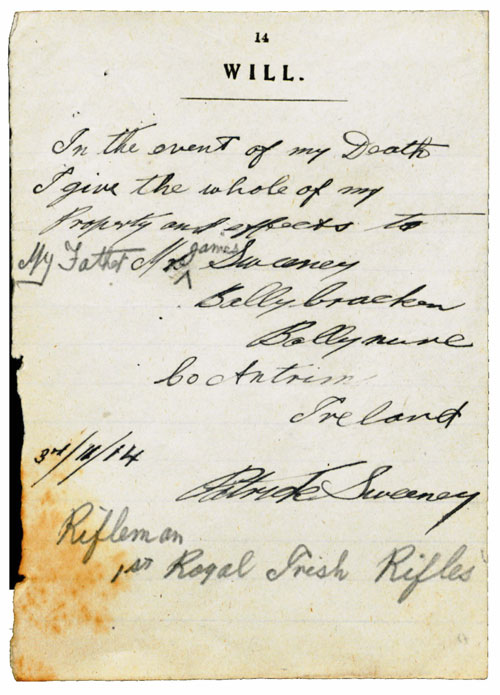 14
WILL.
In the event of my Death
I give the whole of my
Property and effects to
My Father Mr James Sweeney
Ballybracken
Ballynure
Co Antrim
Ireland
3rd/11/14
Patrick Sweeney
Rifleman
1st Royal Irish Rifles